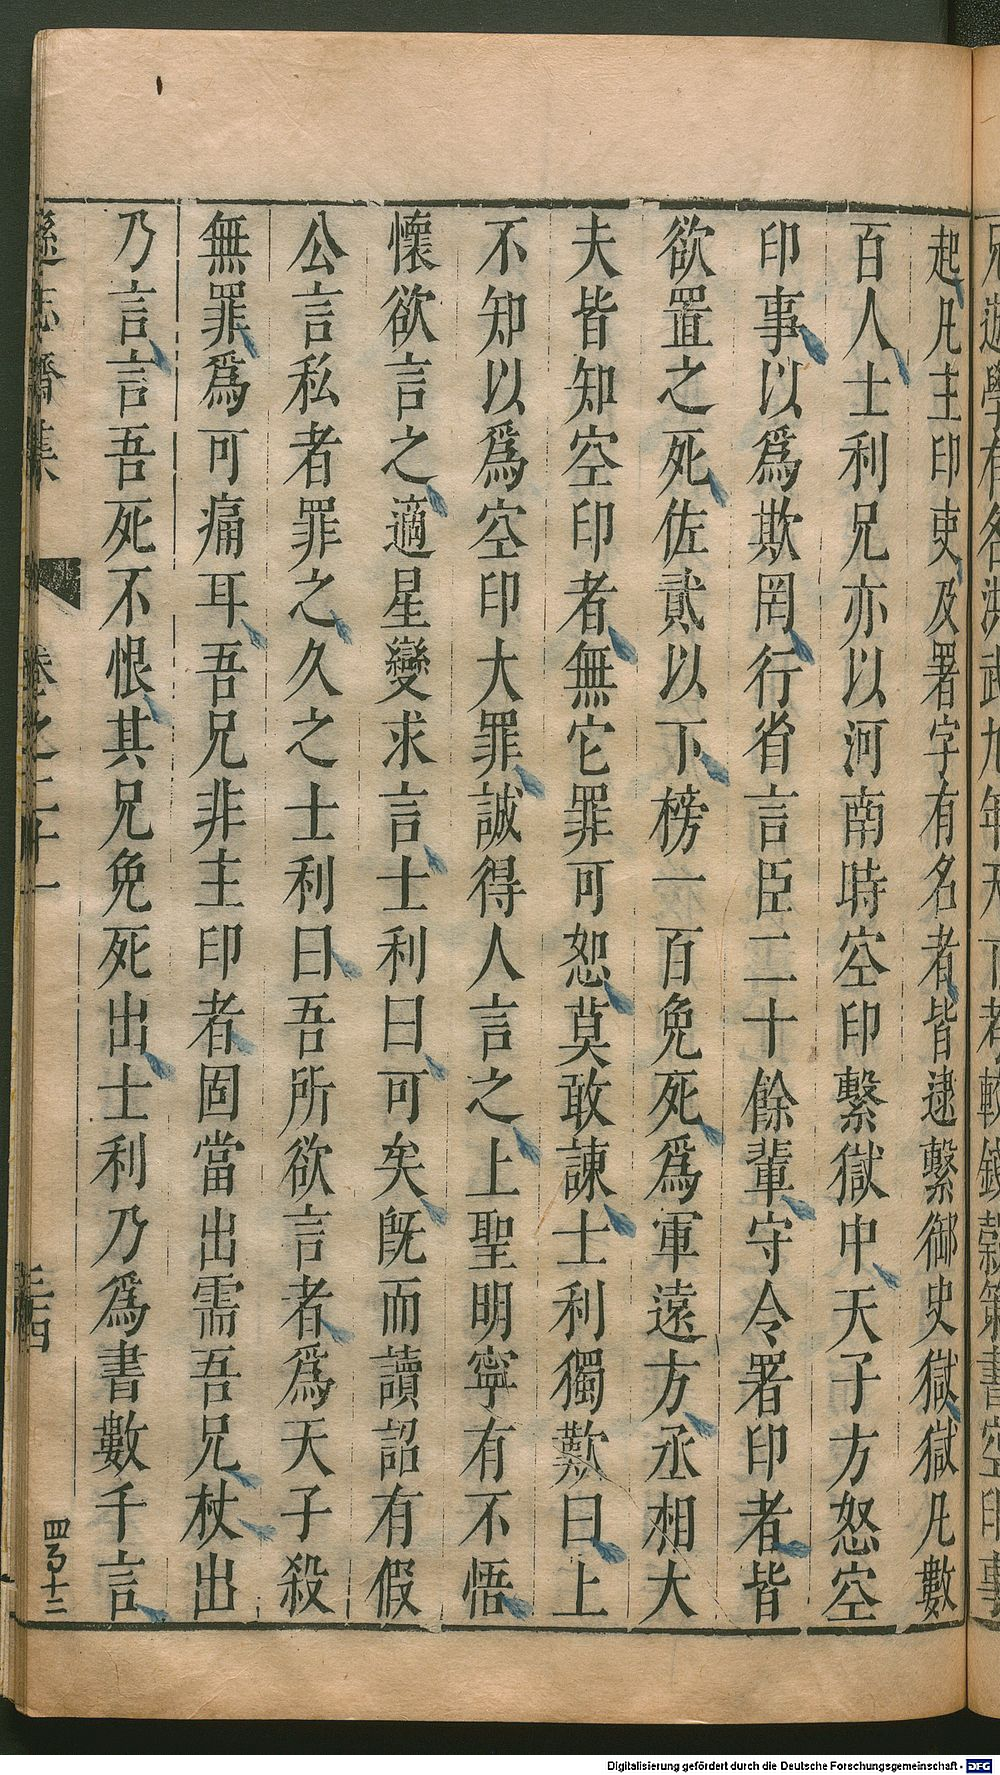 起凡主印吏及署字有名者皆逮繫御史獄獄凡數
百人士利兄亦以河南時空印繫獄中天子方怒空
印事以爲欺罔行省言臣二十餘輩守令署印者皆
欲置之死佐貳以下榜一百免死爲軍遠方丞相大
夫皆知空印者無它罪可恕莫敢諫士利獨歎曰上
不知以爲空印大罪誠得人言之上聖明寧有不悟
懷欲言之適星變求言士利曰可矣旣而讀詔有假
公言私者罪之久之士利曰吾所欲言者爲天子殺
無罪爲可痛耳吾兄非主印者固當出需吾兄杖出
乃言言吾死不恨其兄免死出士利乃爲書數千言
遜志齋集
卷之二十一
三十四
四百十二
Digitalisierung gefördert durch die Deutsche Forschungsgemeinschaft - DFG